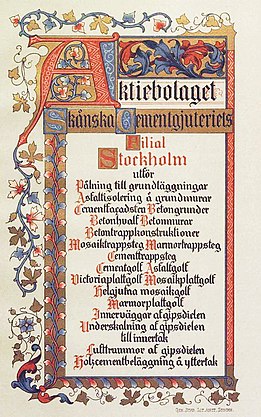 Aktiebolaget
Skånska Cementgjuteriets
Filial
Stockholm
utför
Pålning till grundläggningar
Asfaltisolering å grundmurar
Cementfaçadsten Betongrunder
Betonhvalf Betonmurar
Betontrappkonstruktioner
Mosaiktrappsteg Marmortrappsteg
Cementtrappsteg
Cementgolf Asfaltgolf
Victoriaplattgolf Mosaikplattgolf
Helgjutna mosaikgolf
Marmorplattgolf
Innerväggar af gipsdielen
Underskalning af gipsdielen
till innertak
Lufttrummor af gipsdielen
Holzcementbeläggning å yttertak
Gen. Stab. Lit. Anst. Sthlm.